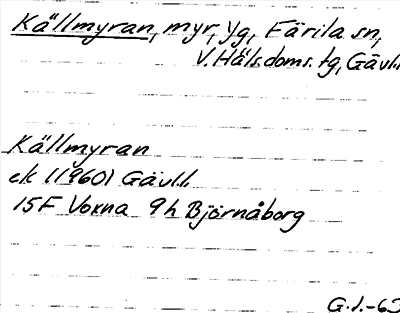 Källmyran, myr, yg, Färila sn,
V. Häls.doms. tg, Gävl.
Källmyran
ek (1960) Gävl.
15F Voxna 9h Björnåborg
G.I.-63